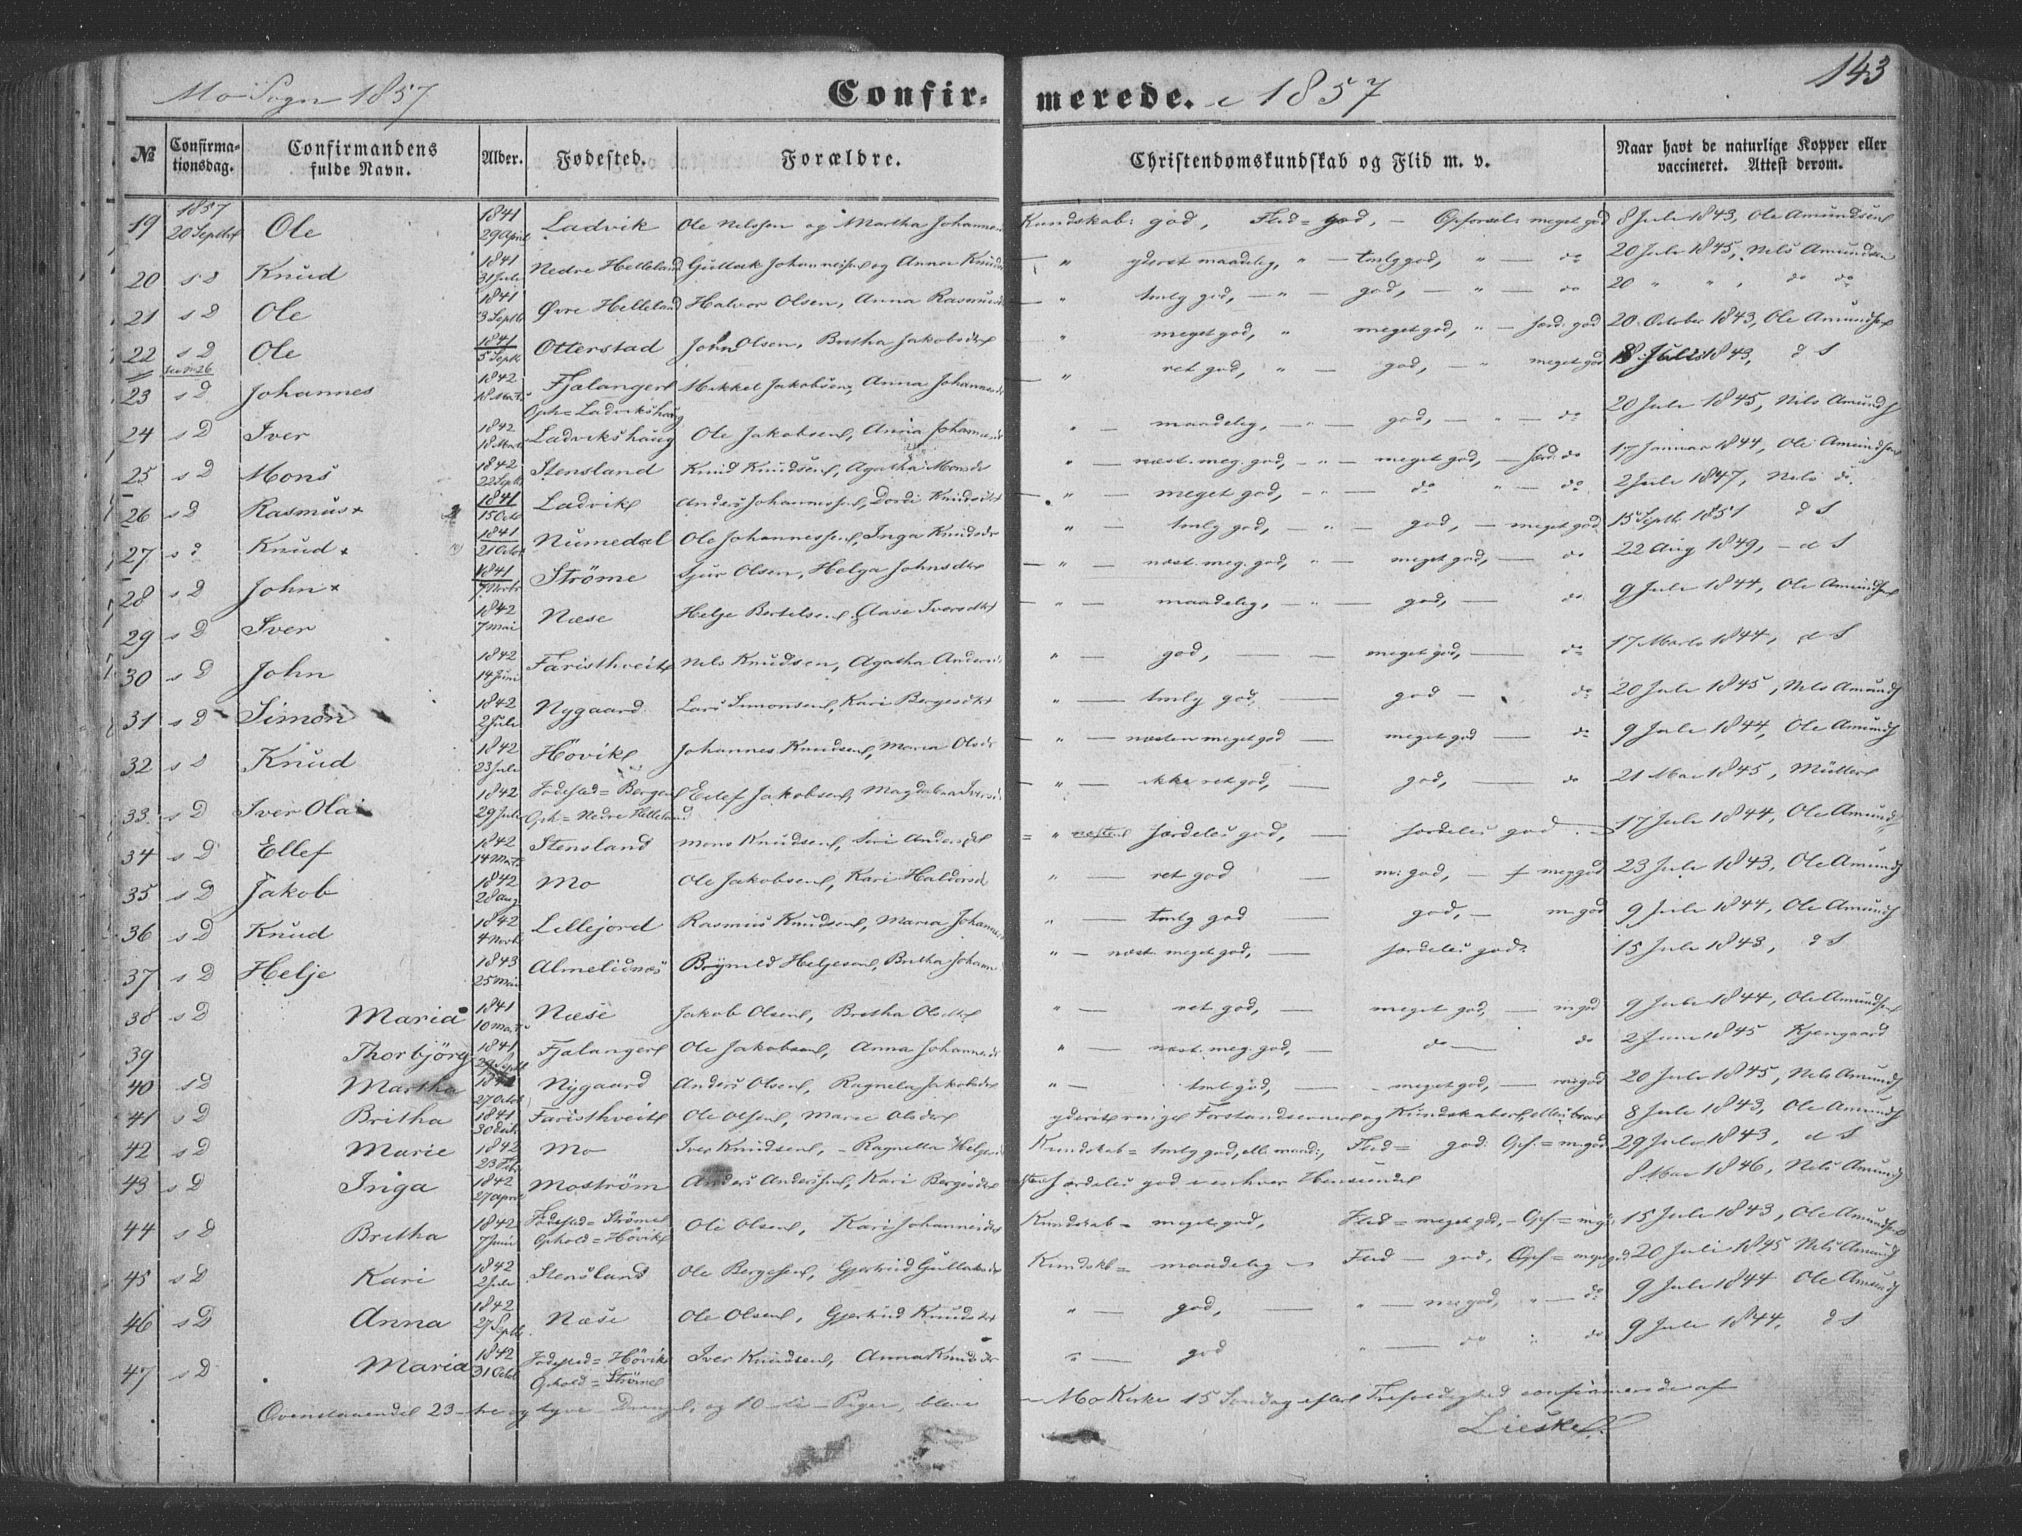 Mo Sogn 1857
Confirmerede. i 1857
143
№ Confirmationsdag. Confirmandens fulde Navn. Alder. Fødested. Forældre. Christendomskundskab og Flid m. v. Naar havt de naturlige Kopper eller vaccineret. Attest derom.
19 1857 20 Septbr Ole 1841 29 April Ladvik Ole Nilssen og Martha Johannes Kundskab: god, Flid = god, – Opførsel: meget god 8 Juli 1843, Ole Amundsen
20 s d Knud 1841 31 Juli Nedre Helleland Gullak Johannessen og Anna Knuds — " yderst maadelig, " — tmlg god, " — do 20 Juli 1845, Nels Amundsen
21 s D Ole 1841 3 Septb Øvre Helleland Halvor Olsen, Anna Rasmusd — " tmlg god, — " — god, — " — do 20 " " , do do
22 s D Ole 1841 5 Septb Otterstad John Olsen, Britha Jakobsdtr " meget god, " meget god, " — særd. god 20 October 1843, Ole Amundsen
23 s D Johannes 1842 18 Mars Fjælanger Oph = Ladvikshaug Mikkel Jakobsen, Anna Johannesd — " ret god, " — god, — " meget god 8 Juli 1843, d S
24 s D Iver 1842 18 Mars Ladvikshaug Ole Jakobsen, Anna Johannesd " — maadelig, — " — god, — " — do 20 Juli 1845, Nils Amunds
25 s D Mons 1842 22 Septb Stensland Knud Knudsen, Agatha Monsd " — næst. meg. god, — " — meget god, — særd. do 17 Januar 1844, Ole Amundsen
26 s D Rasmus + 1841 15 Octb Ladvik Anders Johannessen, Dordi Knudsdt — " — meget god, — " — do " — do 2 Juli 1847, Nels do.
27 s d Knud + 1841 21 Octbr Numedal Ole Johannessen, Inga Knudsdr " — tmlg god, — " — god, — meget god 15 Septb. 1851 d S
28 s D John + 1841 7 Novbr Strøme Sjur Olsen, Helga Johnsdtr — " — næst. meg. god, " — meget god, — do 22 Aug 1849, – d S
29 s D Iver 1842 7 Mai Næse Helje Bertelsen, Aase Iversdtr — " — maadelig, — " — god, — do 9 Juli 1844, Ole Amundsen
30 s D John 1842 14 Juni Faristhveit Nels Knudsen, Agatha Andersd " — god, — — meget god, — do 17 Marts 1844, d S
31 s D Simon 1842 2 Juli Nygaard Lars Simonsen, Kari Bergesdtr " — tmlg god, — god — do 20 Juli 1845, Nels Amunds
32 s d Knud 1842 23 Juli Høvik Johannes Knudsen, Maria Olsdr — " — næsten meget god — meget god — do 9 Juli 1844, Ole Amunds
33 s D Iver Olai 1842 29 Juli Fødested = Bergen Oph = Nedre Helleland Ellef Jakobsen, Magdalena Iversd — " — ikke ret god, — god, — do 21 Mai 1845, Müller
34 s D Ellef 1842 14 Mars Stensland Mons Knudsen, Siri Andersdt = " særdeles god, — særdeles god 17 Juli 1844, Ole Amunds
35 s D Jakob 1842 28 Aug Mo Ole Jakobsen, Kari Haldorsd " — ret god — m: god, — meg god 23 Juli 1843, Ole Amunds
36 s D Knud 1842 4 Novb Lillejord Rasmus Knudsen, Maria Johannes " — tmlg god — god, — m god 9 Juli 1844, Ole Amunds
37 s D Helje 1843 25 Mai Almelidnæs Brynild Heljesen, Britha Johann " — næst. meget god, — særdeles god 15 Juli 1843, d S
38 s D Maria 1841 10 Mars Næse Jakob Olsen, Britha Olsdtr " — ret god, — meget god, — m god 9 Juli 1844, Ole Amundsen
39 Thorbjörg 1841 29 Septb Fjælanger Ole Jakobsen, Anna Johannesd " — næst. meg. god, — do — do 2 Juni 1845 Kjengaard
40 s D Martha 27 Octbr Nygaard Anders Olsen, Ragnela Jakobsdr " — tml. god, — meget god, — m god 20 Juli 1845, Nels Amunds
41 s D Britha 1841 30 Decb Faristhveit Ole Olsen, Marie Olsdtr yderst ringe Forstandsevner og Kundskaber, ellers brav 8 Juli 1843, Ole Amunds
42 s D Marie 1842 23 Febr Mo Iver Knudsen, – Ragnella Heljesd Kundskab = tmlg god, ell. maad:, Flid = god. Opf. = m god 29 Juli 1843, d S
43 s D Inga 1842 27 April Moström Anders Andersen, Kari Bergesdtr særdeles god i enhver Henseende 8 Mai 1846, Nels Amunds
44 s D Britha 1842 7 Juni Fødested = Strøme Ophold = Høvik Ole Olsen, Kari Johannesdt Kundskab = meget god, Flid = meget god, – Opf = m g 15 Juli 1843, Ole Amundsen
45 s D Kari 1842 2 Juli Stensland Ole Bergesen, Gjertrud Gullaksdr Kundskb = maadelig — Flid — god, Opf = meget god 20 Juli 1845 Nels Amunds
46 s D Anna 1842 27 Septb. Næse Ole Olsen, Gjertrud Knudsdtr " — god, — " — m. god, " — do 9 Juli 1844 Ole Amunds
47 s D Maria 1842 31 Octb Fødested = Høvik Ophold = Strøme Iver Knudsen, Anna Knudsdr " — god " — do " do 9 Juli 1844, d S
Ovenstaaende 23 – tre og tyve – Drenge, og 10 – ti – Piger, bleve i Mo Kirke 15 Søndag efter Trefoldighed confirmerede af
Lieske.